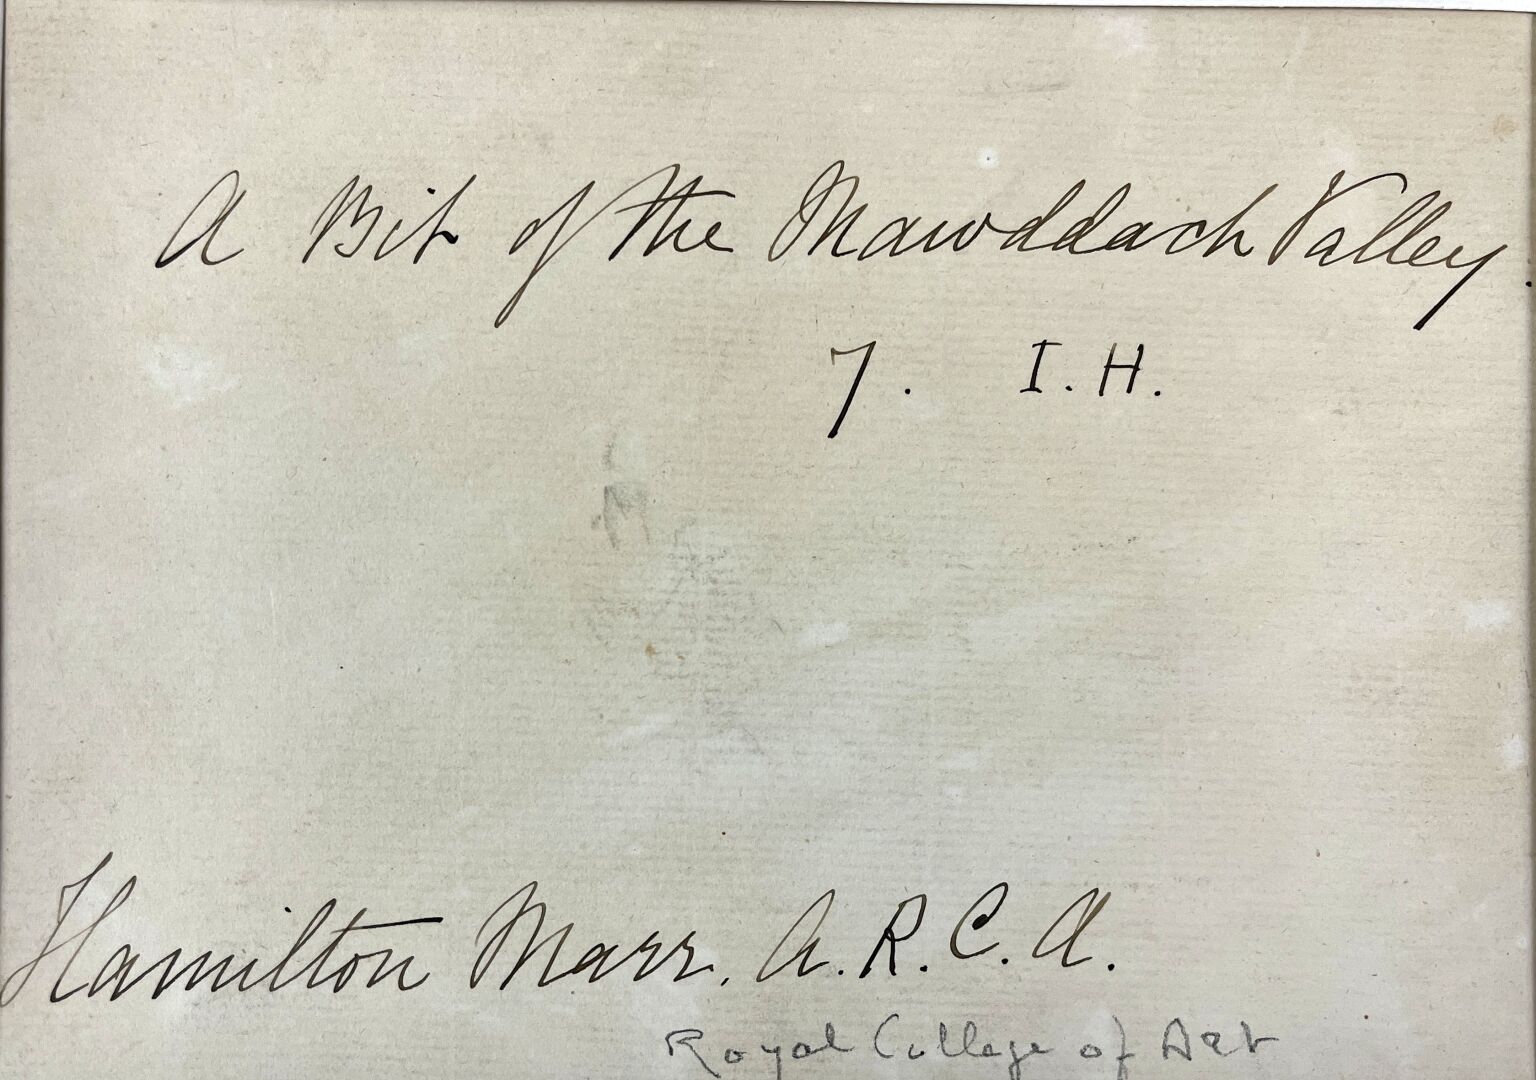 A Bit of the Mawddach Valley.
7. I.H.
Hamilton Marr. A.R.C.A.
Royal College of Art